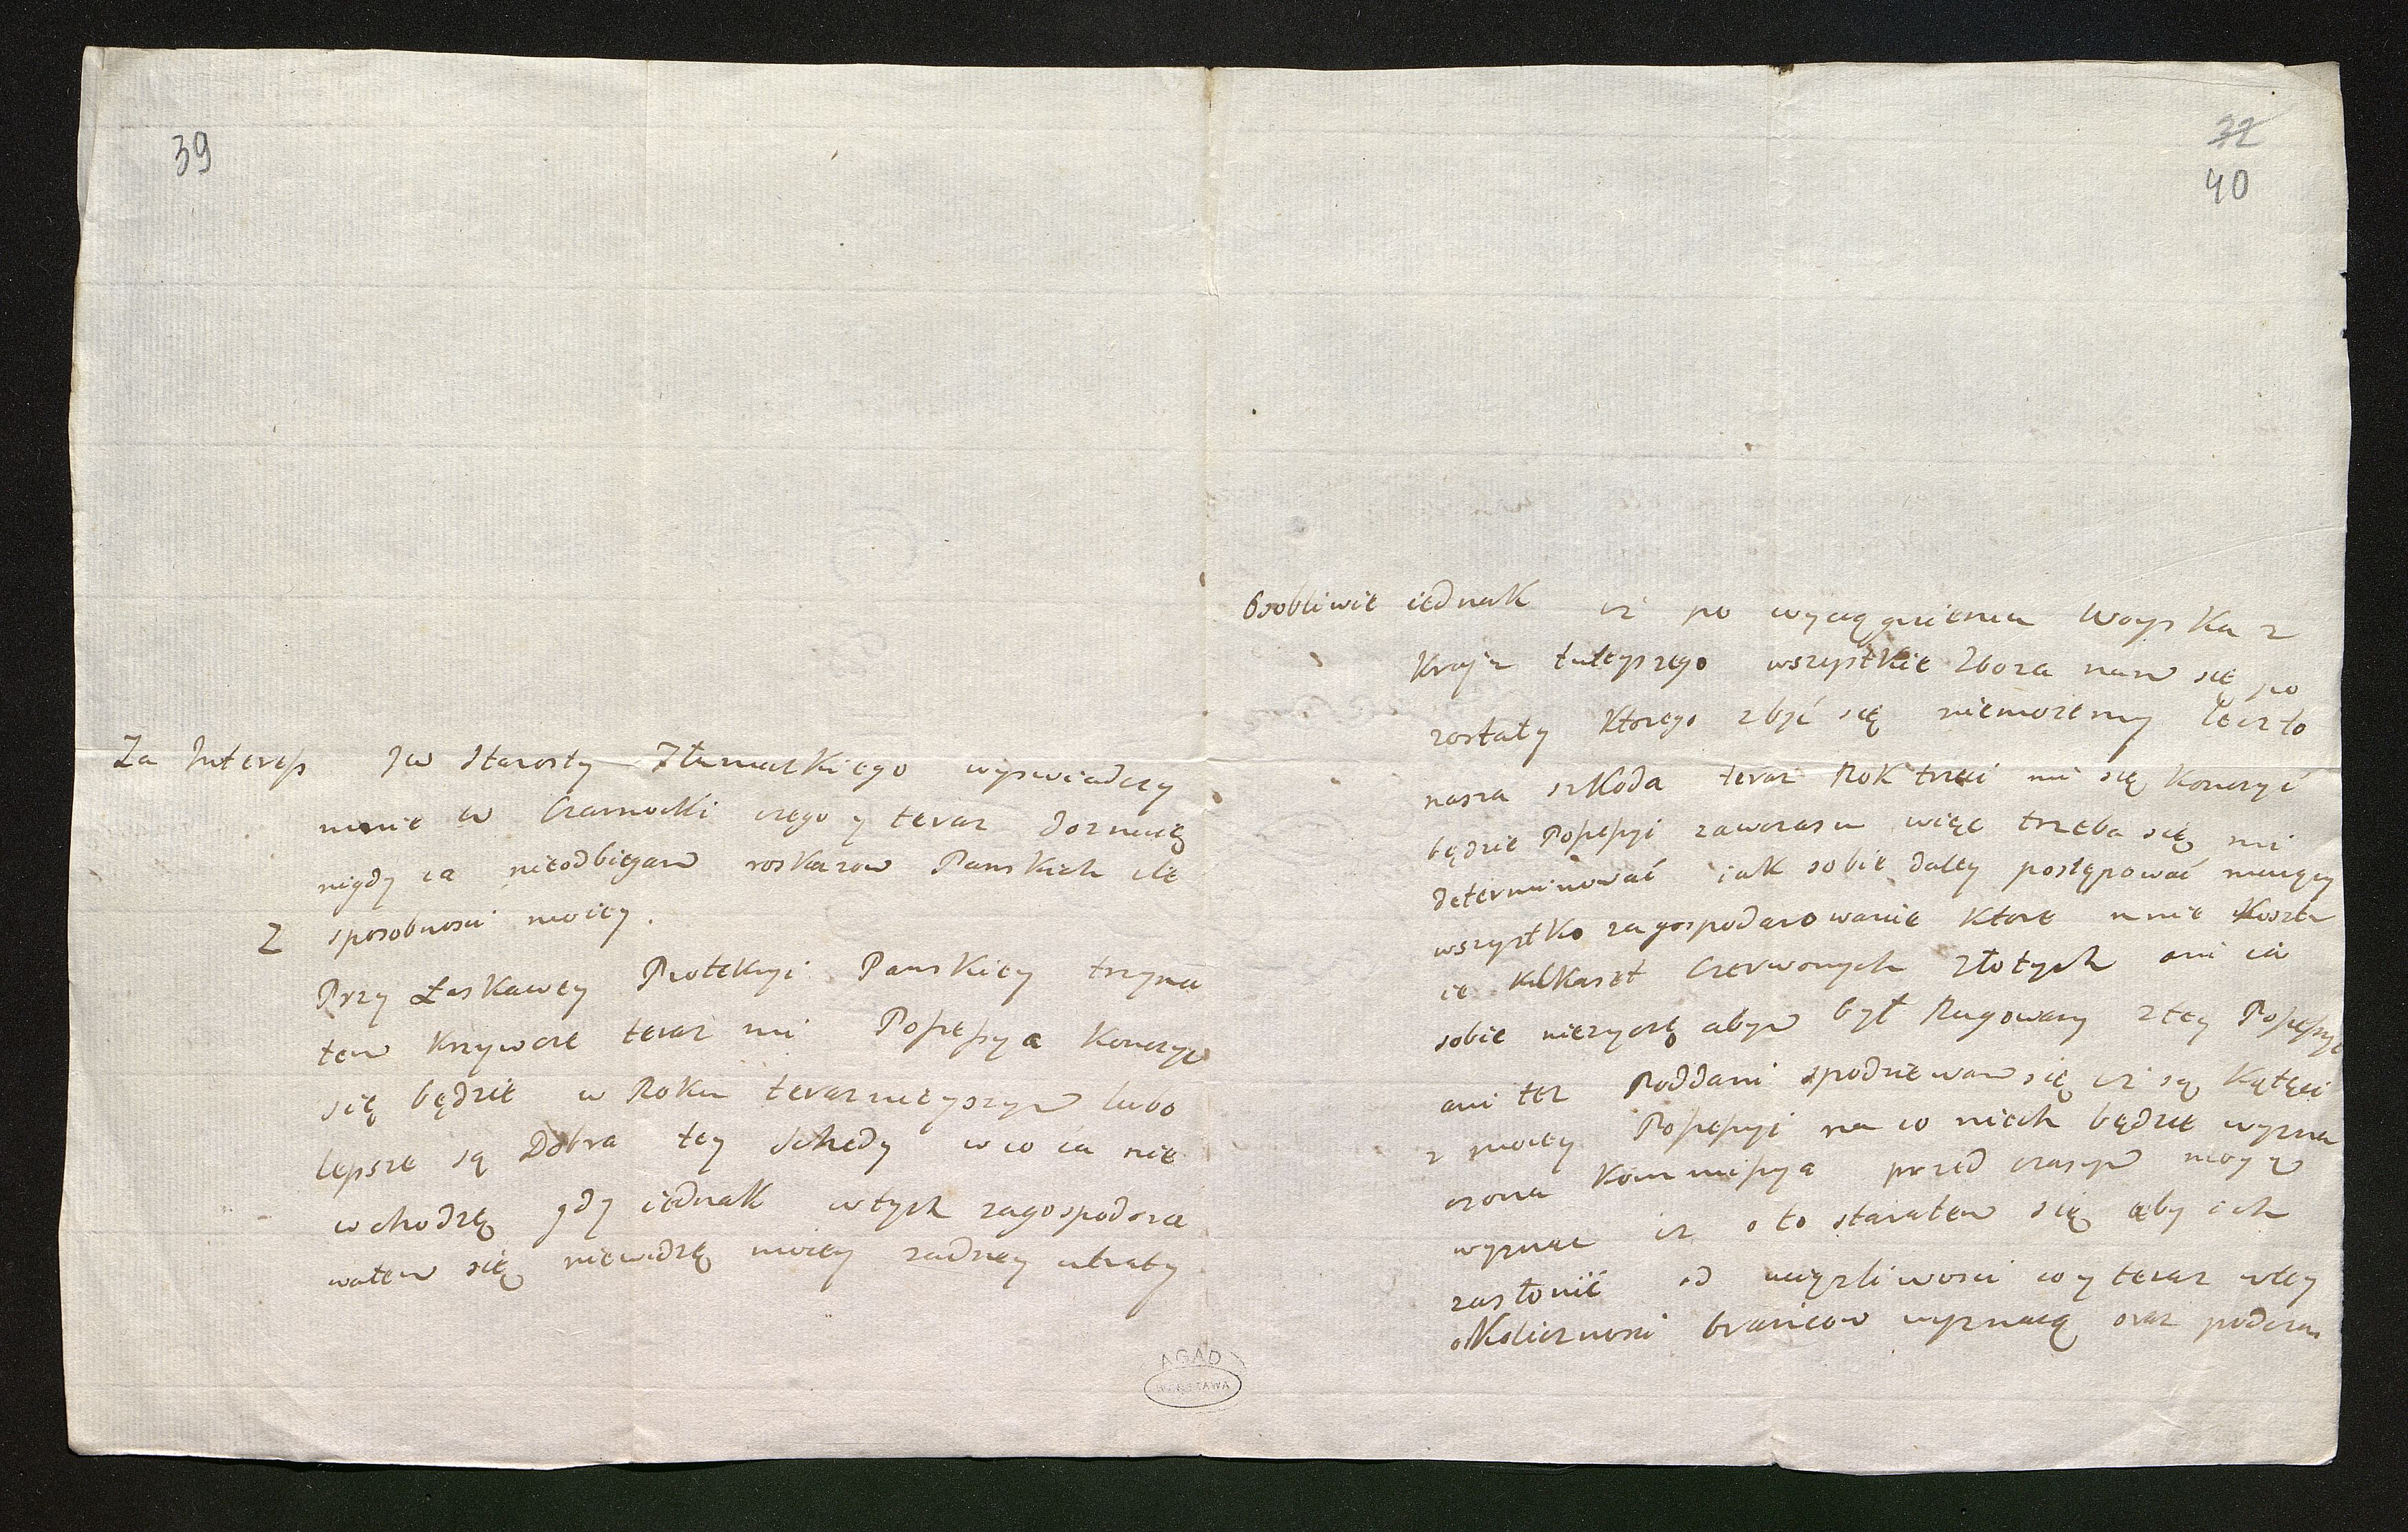 39
Za Interess JW Starosty Tłumackiego wyswiadczy
mnie W Czarnocki czego y teraz doznaię
nigdy ia nieodbiegam roskazow Panskich ile
Z sposobnosci moiey.
Przy Łaskawey Protekcyi Panskiey trzyma
łem Krzywcze teraz mi Possessya Konczyc
się będzie w Roku terazneyszym lubo
lepsze są Dobra tey Schedy w co ia nie
wchodzę gdy iednak wtych zagospodara
wałem się niewidzę moiey zadney utraty
32
40
Osobliwie iednak iz po wyciągnieniu Woyska z
Kraju tuteyszego wszystkie Zboza nam się po
zostały Ktorego zbyć się niemozemy Lecz to
nasza szkoda teraz Rok trzeci mi się Konczyć
będzie Possessyi zawczasu więc trzeba się mi
determinować iak sobie daley postępować maiący
wszystko zagospodarowanie Ktore mnie Kosztu
ie Kilkaset Czerwonych Złotych ani ia
sobie nieżyczę abym był Rugowany z tey Possessyi
ani tez Poddani spodziewam się iz są Kątęci
z moiey Possessyi na co niech będzie wyzna
czona Kommissya przed czasym moym
wyznac iz o to starałem się aby ich
zasłonić od uciązliwosci co y teraz wtey
okolicznosci brancow wyznaią oraz podczas
AGAD
WARSZAWA